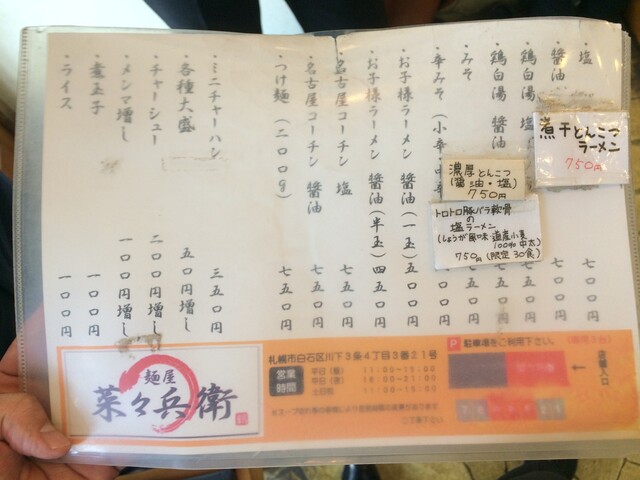 ・塩 七〇〇円
・醤油 七〇〇円
・鶏白湯 塩
・鶏白湯 醤油
・みそ
・辛みそ（小辛
・お子様ラーメン 醤油（一玉）五〇〇円
・お子様ラーメン 醤油（半玉）四五〇円
・名古屋コーチン 塩 七五〇円
・名古屋コーチン 醤油 七五〇円
・つけ麺（二〇〇g） 七五〇円
・ミニチャーハン 三五〇円
・各種大盛 五〇円増し
・チャーシュー 二〇〇円増し
・メンマ増し 一〇〇円増し
・煮玉子 一〇〇円
・ライス 一〇〇円
煮干とんこつ
ラーメン
750円
濃厚とんこつ
(醤油・塩)
750円
トロトロ豚バラ軟骨
の
塩ラーメン
(しょうが風味 道産小麦
100% 中太)
750円(限定30食)
麺屋
菜々兵衛
札幌市白石区川下3条4丁目3番21号
営業
時間
P 駐車場をご利用下さい。
店舗入口